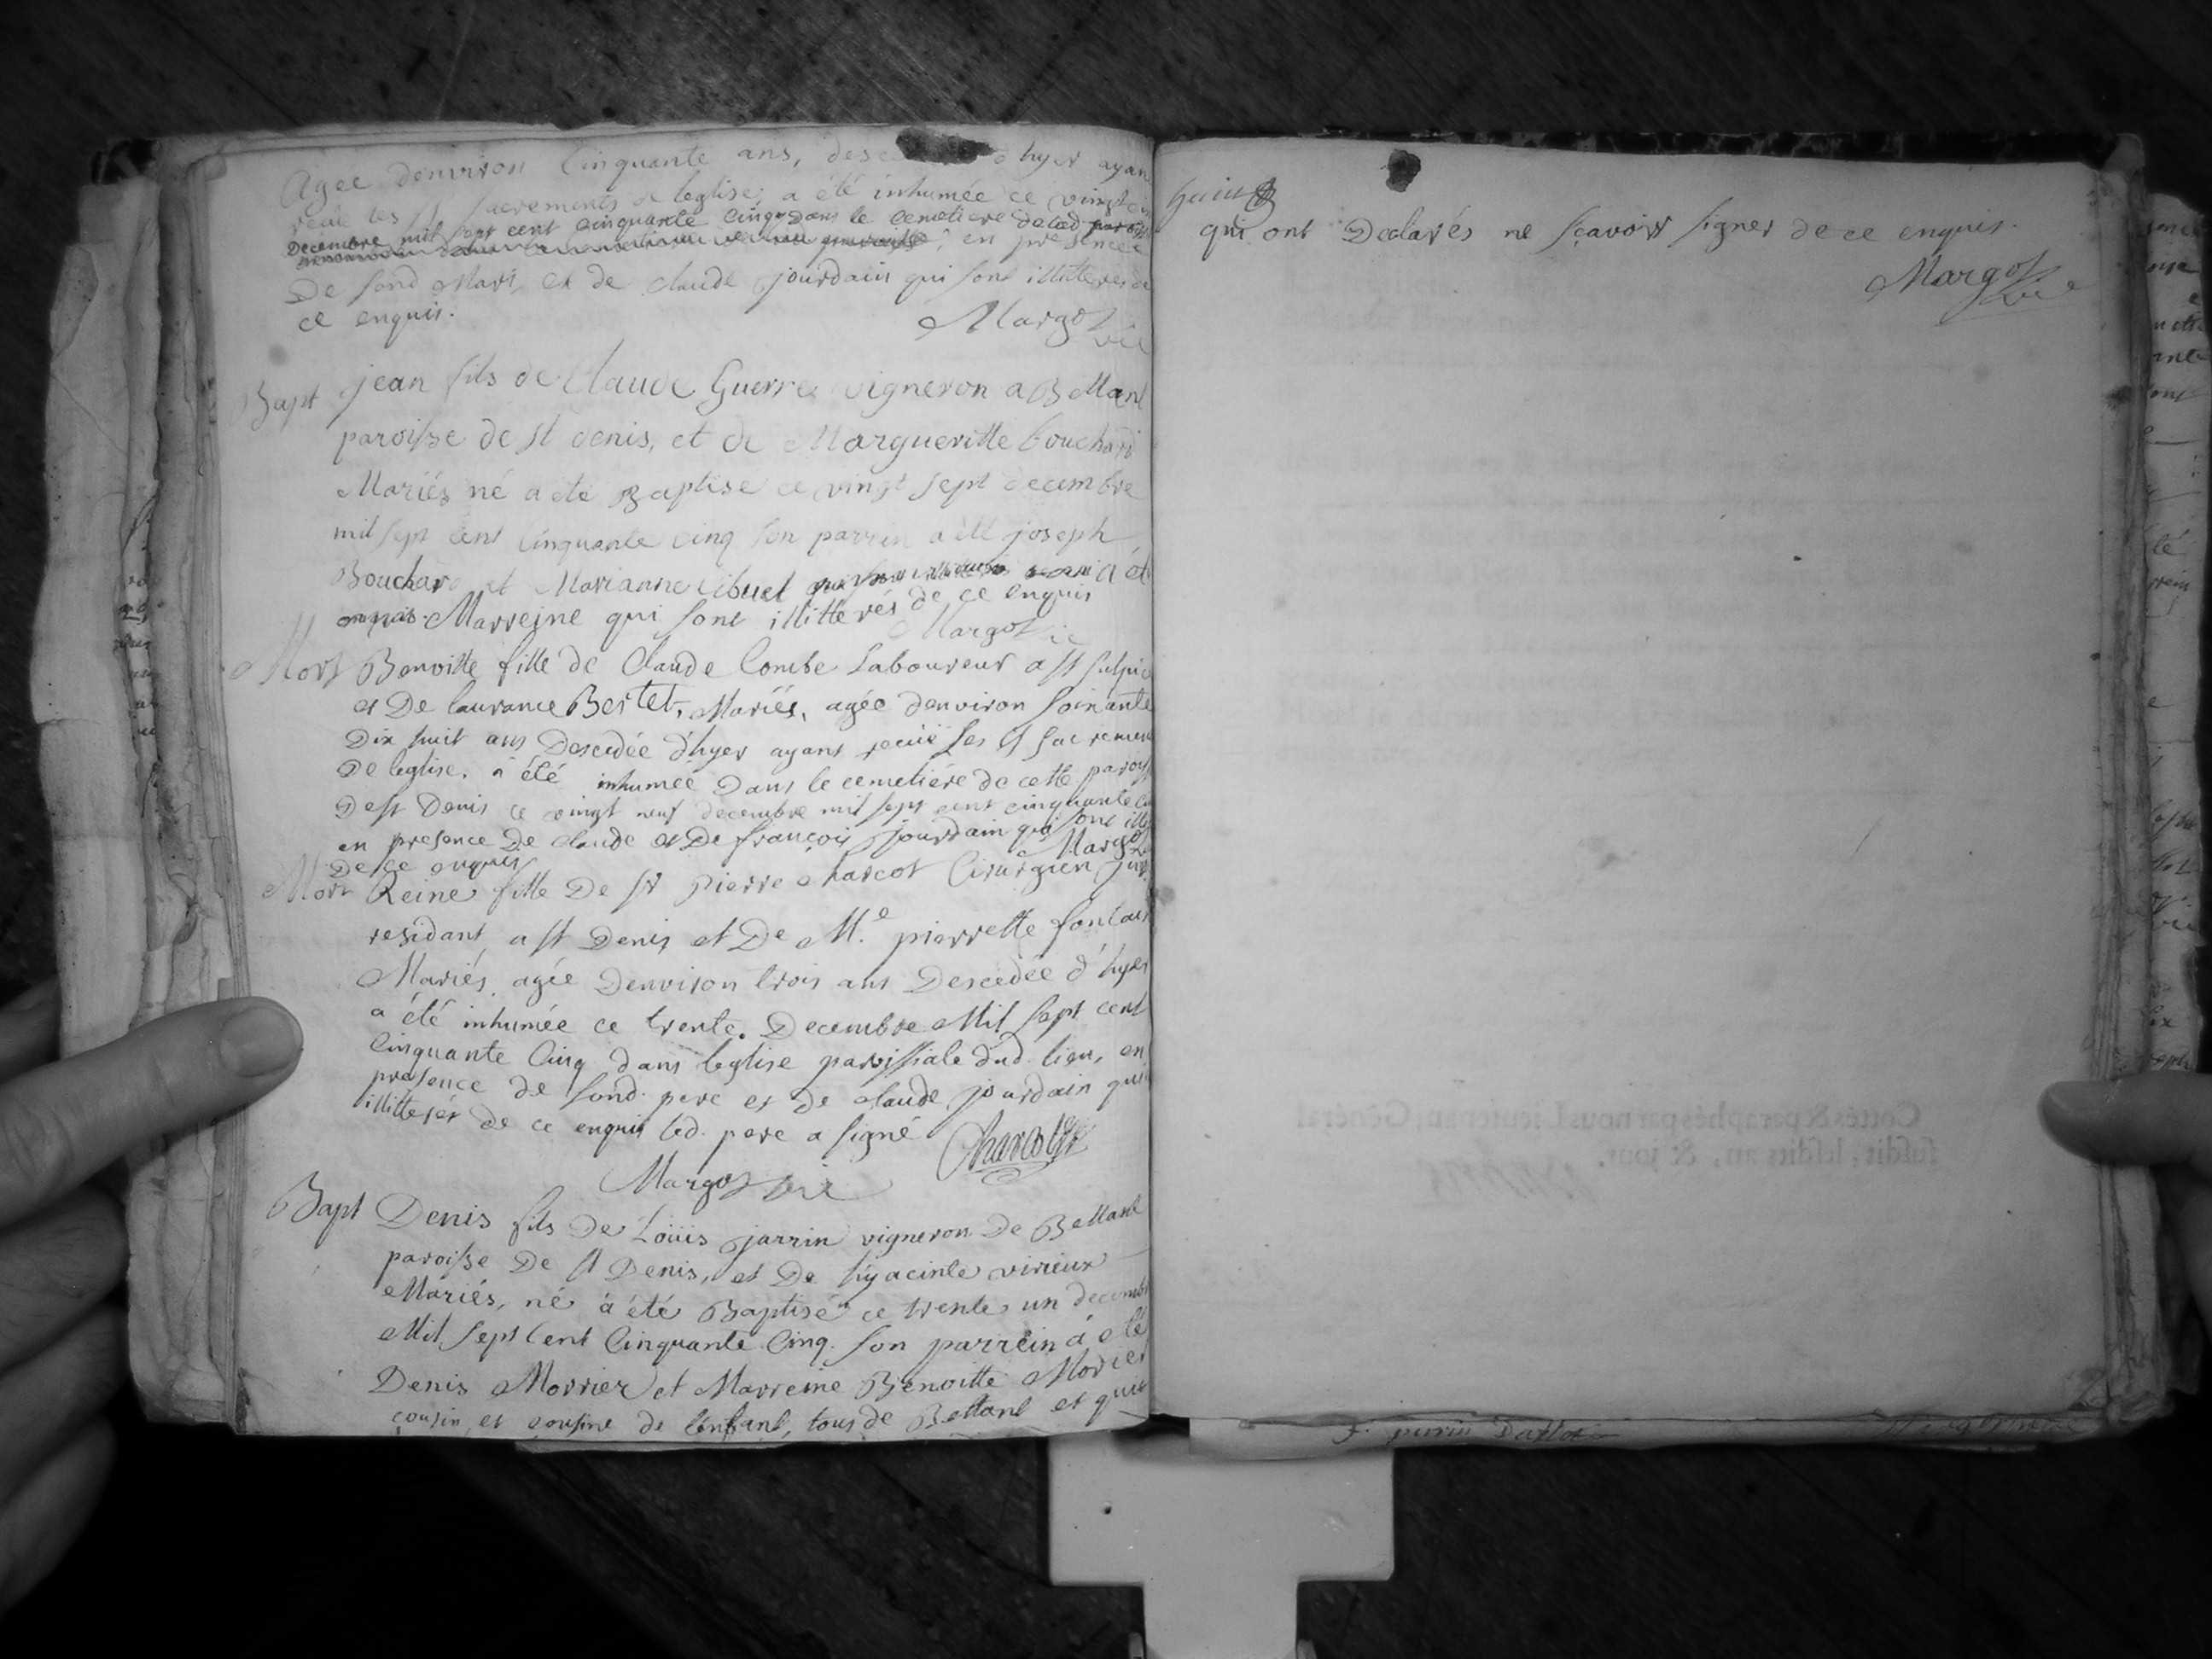 Agée denviron Cinquante ans, hyer ayan
les sts sacrements de leglise, a été inhumée ce vingt
Decembre mil sept cent cinquante cinq dans le cemetiere delad parois
en presence
De sond Mari, et de claude jourdain qui sont illitterés de
ce enquis.
Margot vic
Bapt jean fils de Claude Guerre vigneron a Bettant
paroisse de st denis, et de Margueritte bouchard
Mariés né a été Baptisé ce vingt sept decembre
mil sept cent Cinquante cinq son parrin a été joseph
Bouchard et Marianne a été
Marreine qui sont illitterés de ce enquis
Margot vic
Mort Benoitte fille de Claude Combe Laboureur a st sulpic
et De laurance Bertet, Mariés, agée denviron soixante
Dix huit ans Descedée d'hyer ayant reçüe les st sacremen
De leglise, a été inhumée Dans le cemetiére de cette parois
De st Denis ce vingt neuf decembre mil sept cent cinquante
en presence De claude et De françois jourdain qui sont
De ce enquis Margot
Mort Reine fille De sr pierre charcot Cirurgien jur
residant a st Denis et De Me. pierrette fontai
Mariés, agée Denviron trois ans Descedée d'hyer
a été inhumée ce trente. Decembre Mil sept cent
Cinquante Cinq dans leglise paroissiale dud. lieu, en
presence de sond. pere et de claude jourdain qui
illitterés de ce enquis led. pere a signé Charcot
Margot vic
Bapt Denis fils De Loüis jarrin vigneron De Bettant
paroisse De st Denis, et De hyacinte virieux
Mariés, né a été Baptisé ce trente un decemb
Mil sept Cent Cinquante Cinq. son parrein a été
Denis Morrier et Marreine Benoitte Morier
cousin et cousine de lenfant, tous de Bettant et qui
qui ont Declarés ne sçavoir signer de ce enquis.
Margot vic
Cottés & paraphés par nous Lieutenant Général
susdit, lesdits an, & jour.